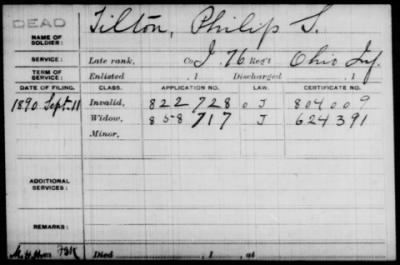 DEAD
NAME OF SOLDIER: Tilton, Philip S.
SERVICE: Late rank, Co. I, 76 Reg't Ohio Inf.
TERM OF SERVICE: Enlisted , 1 Discharged , 1
DATE OF FILING. CLASS. APPLICATION NO. LAW. CERTIFICATE NO.
1890 Sept. 11 Invalid, 822728 J 804009
Widow, 858717 J 624391
Minor,
ADDITIONAL SERVICES:
REMARKS:
Died , 1 , at